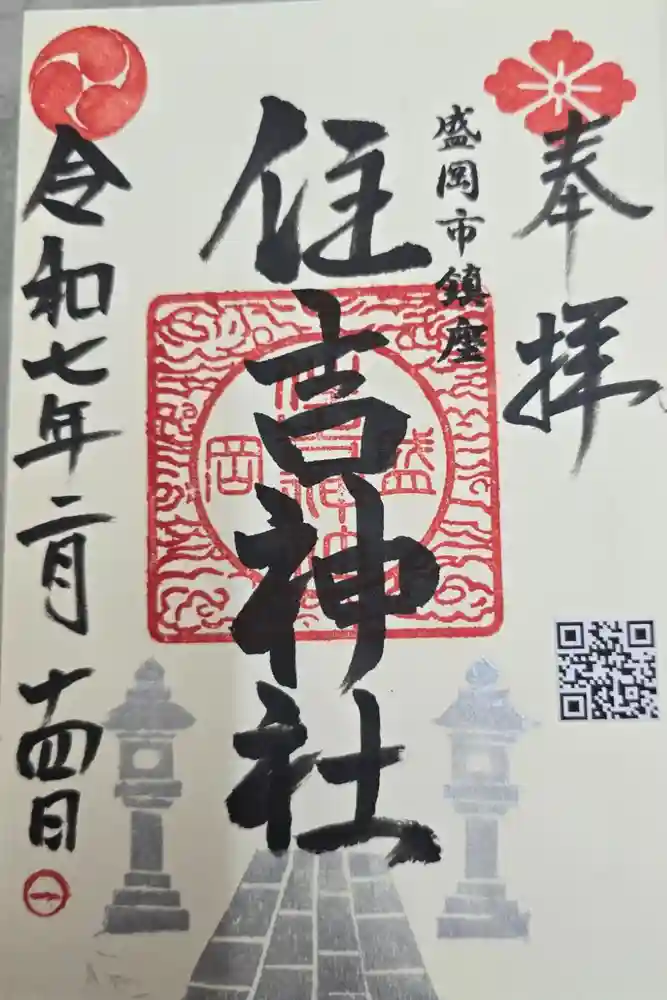 奉拝
盛岡市鎮座
住吉神社
盛
岡
令和七年二月十四日
一